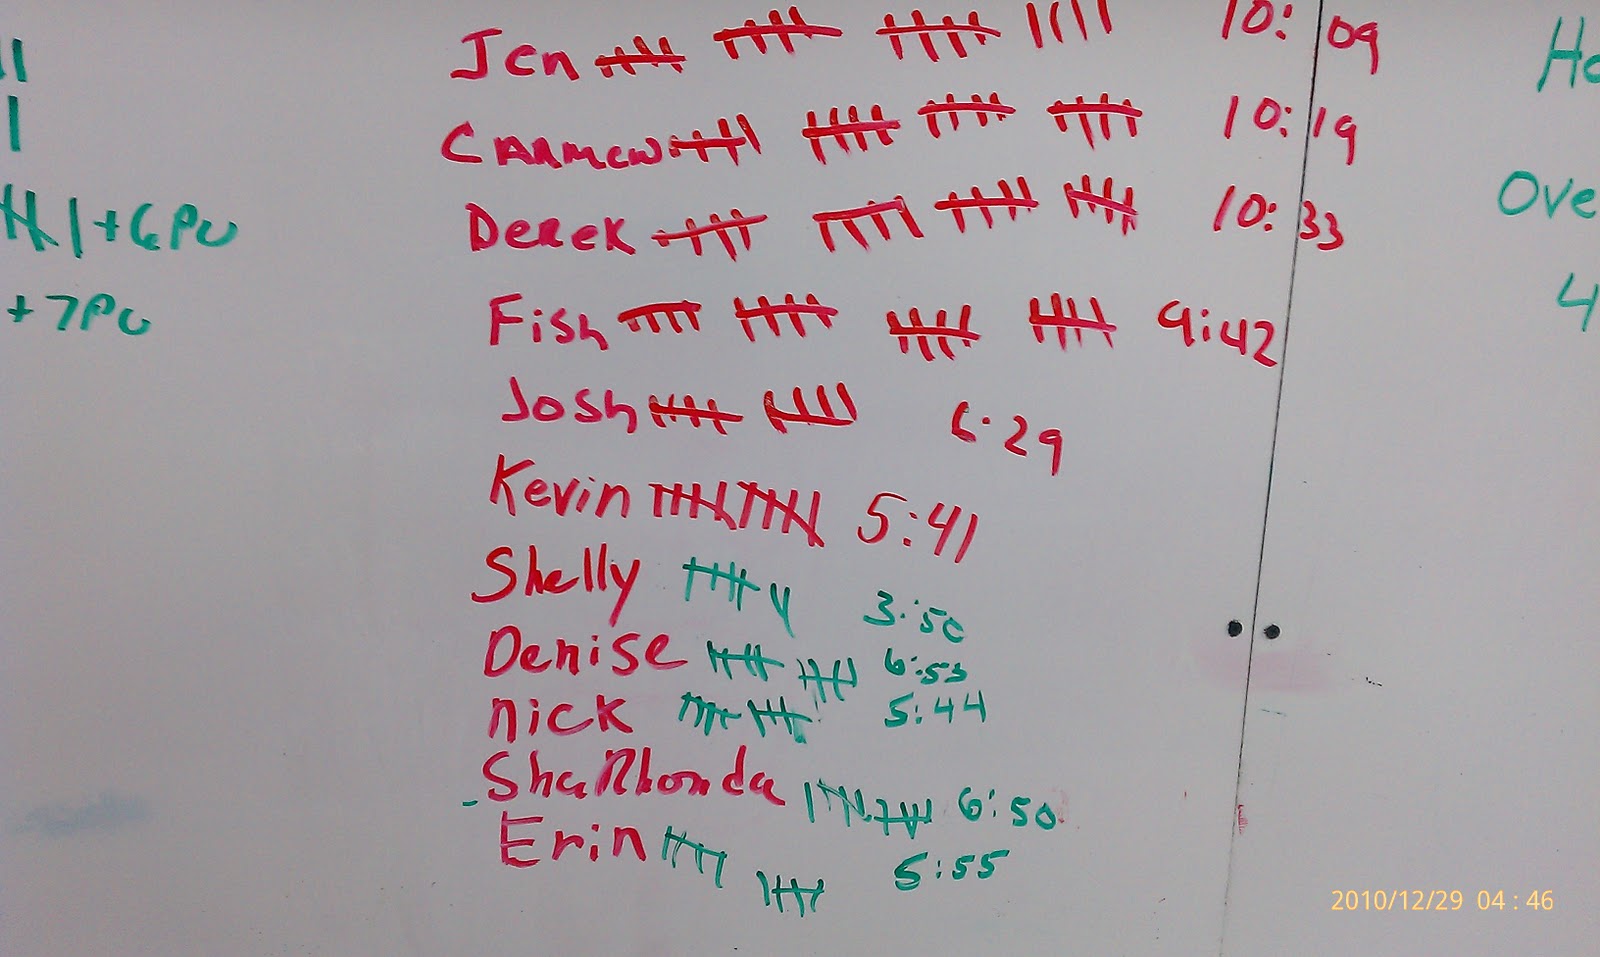 Jen 10:09
Carmen 10:19
+6PU
Derek 10:33
Ove
+7PU
Fish 9:42
4
Josh 6:29
Kevin 5:41
Shelly 3:50
Denise 6:55
nick 5:44
ShaRhonda 6:50
Erin 5:55
2010/12/29 04:46